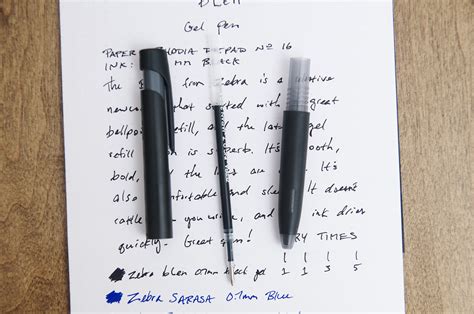 BLEN
Gel Pen
PAPER: RHODIA DOTPAD Nº 16
INK: MM BLACK
The from Zebra is a
newcomer that started with great
ballpoint refill, and the gel
refill is superb. It's smooth,
bold, the lines are It's
also comfortable and It doesn't
rattle you write, and ink dries
quickly. Great pen! DRY TIMES
Zebra blen 0.7mm black gel 1 1 3 5
Zebra SARASA 0.7mm Blue